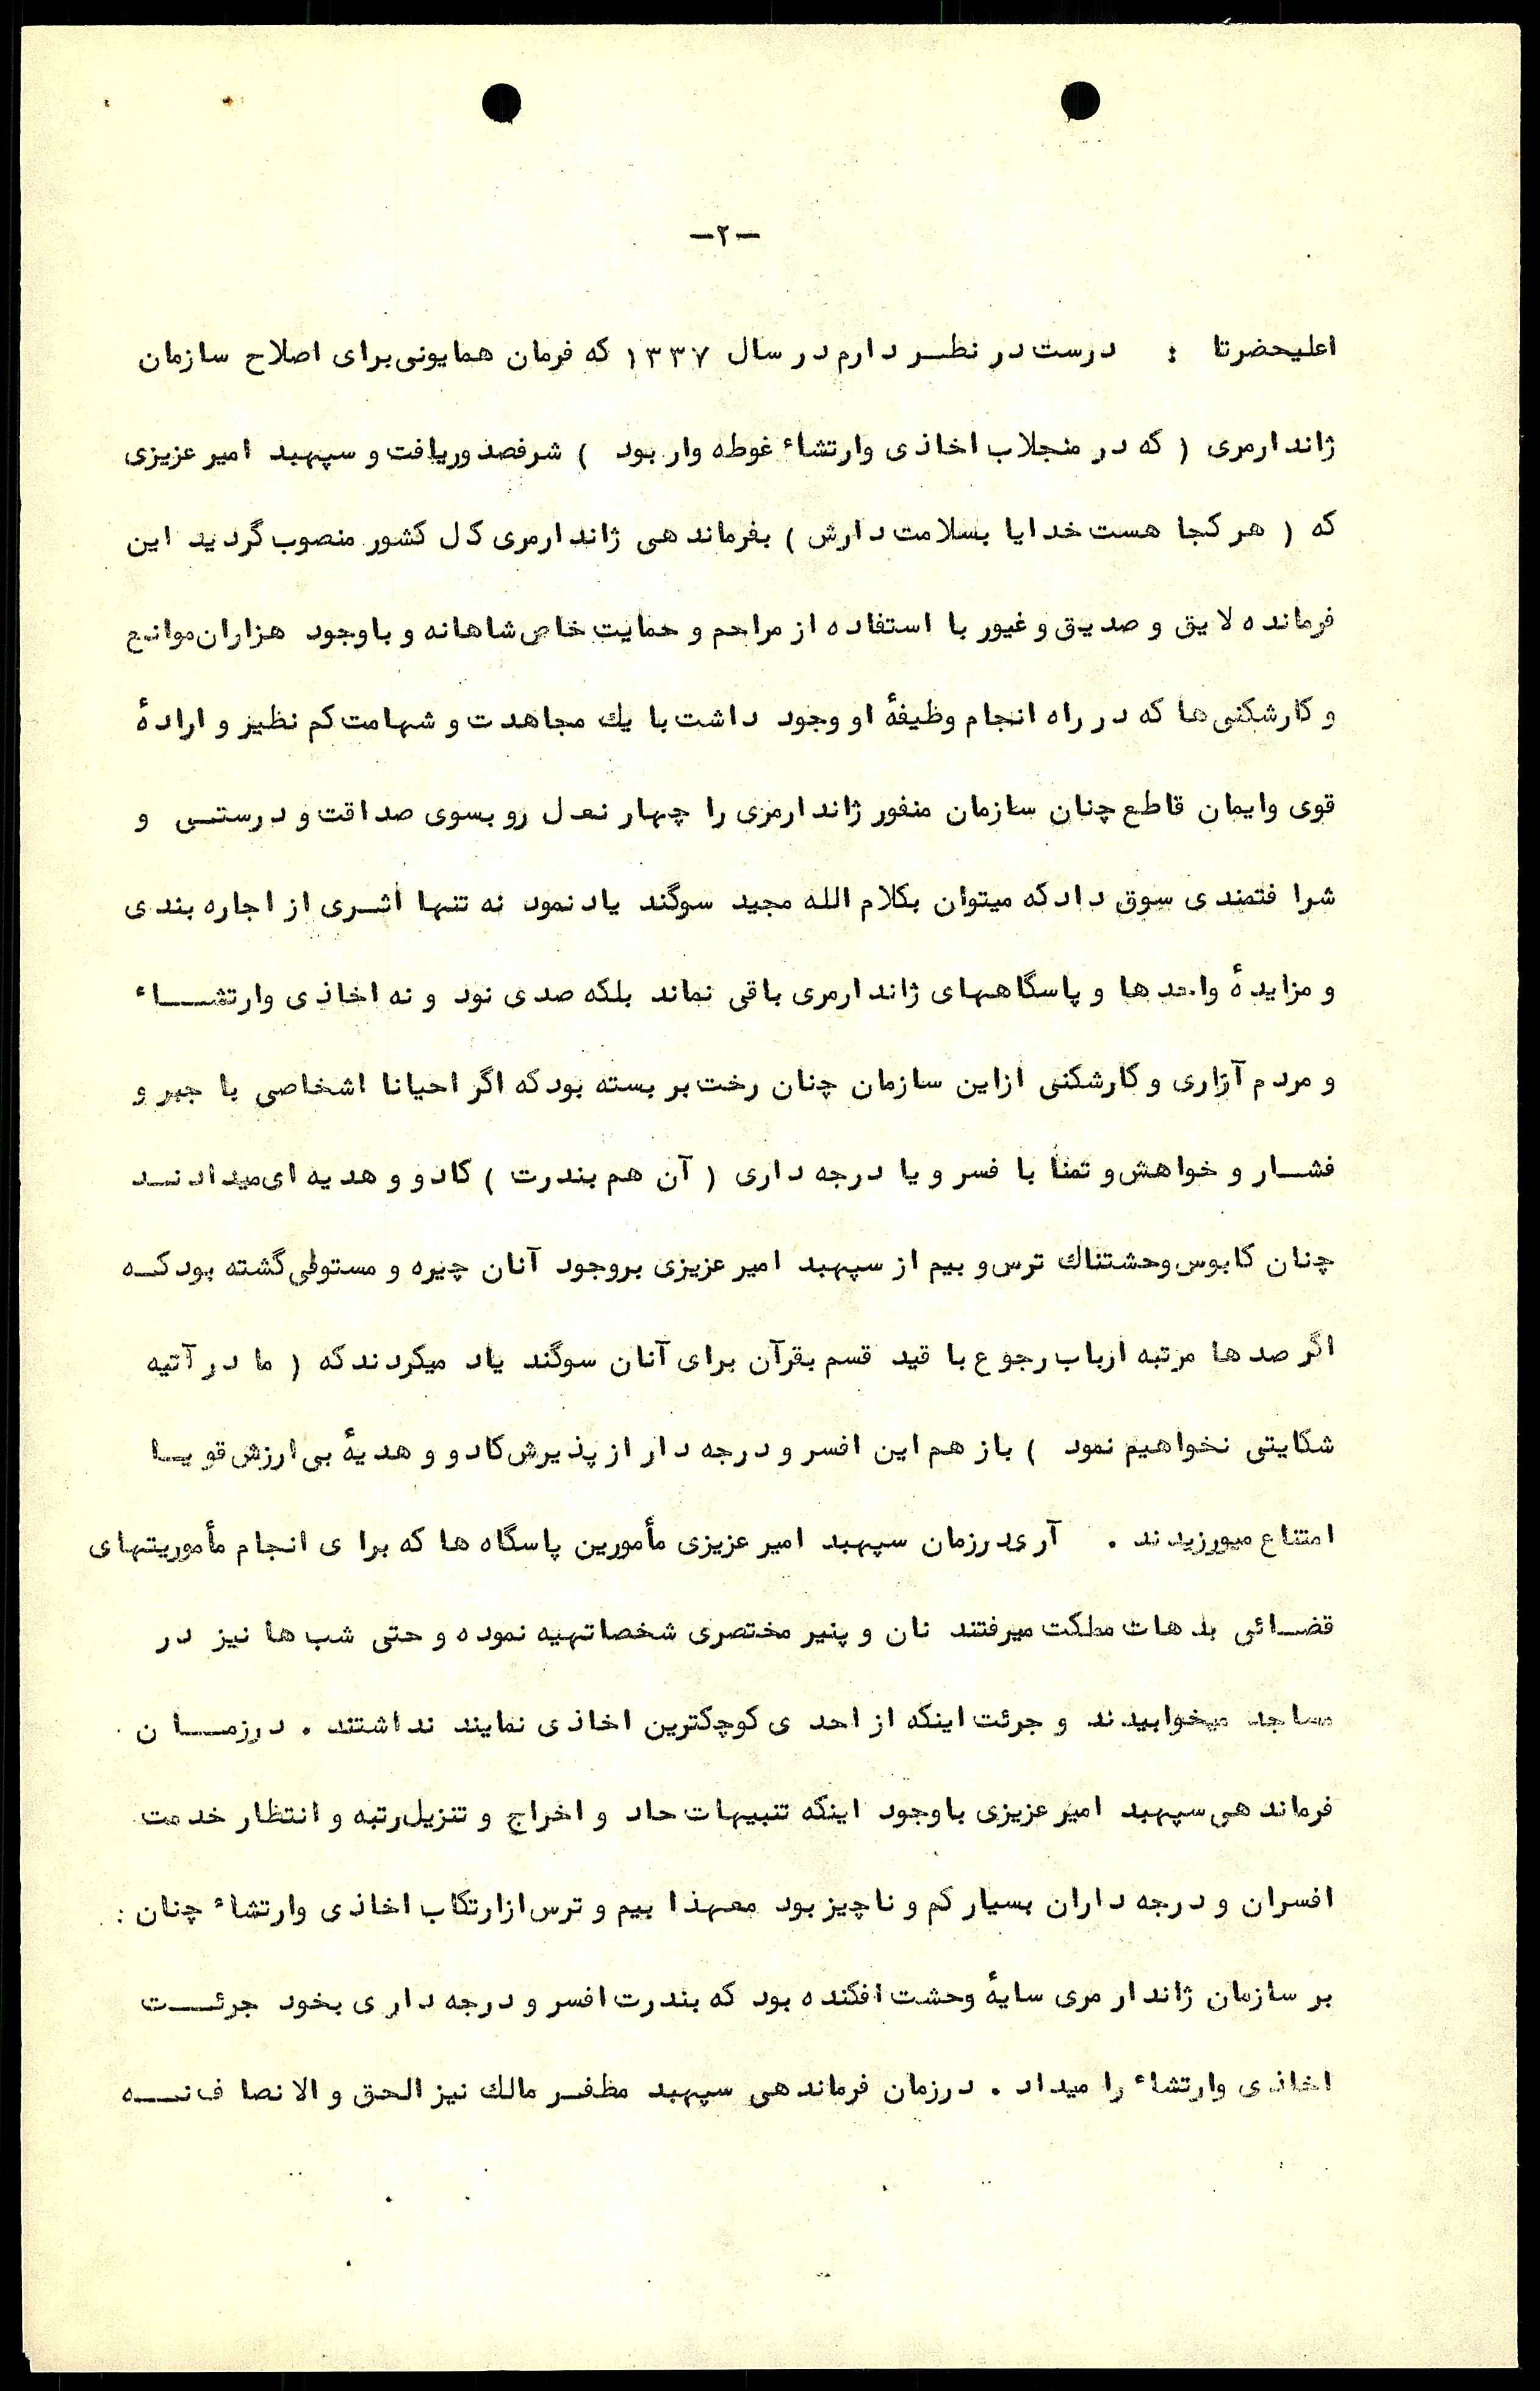 -۲-
اعلیحضرتا : درست در نظر دارم در سال ۱۳۳۷ که فرمان همایونی برای اصلاح سازمان
ژاندارمری ( که در منجلاب اخاذی وارتشاء غوطه وار بود ) شرفصدوریافت و سپهبد امیر عزیزی
که ( هر کجا هست خدایا بسلامت دارش ) بفرماندهی ژاندارمری کل کشور منصوب گردید این
فرمانده لایق و صدیق و غیور با استفاده از مراحم و حمایت خاص شاهانه و باوجود هزاران موانع
و کارشکنی ها که در راه انجام وظیفهٔ او وجود داشت با یك مجاهدت و شهامت کم نظیر و ارادهٔ
قوی وایمان قاطع چنان سازمان منفور ژاندارمری را چهار نعل رو بسوی صداقت و درستی و
شرافتمندی سوق داد که میتوان بکلام الله مجید سوگند یاد نمود نه تنها اثری از اجاره بندی
و مزایدهٔ واحدها و پاسگاههای ژاندارمری باقی نماند بلکه صدی نود و نه اخاذی وارتشاء
و مردم آزاری و کارشکنی ازاین سازمان چنان رخت بر بسته بود که اگر احیانا اشخاصی با جبر و
فشار و خواهش و تمنا با فسر و یا درجه داری ( آن هم بندرت ) کادو و هدیه ای میدادند
چنان کابوس وحشتناك ترس و بیم از سپهبد امیر عزیزی بروجود آنان چیره و مستولی گشته بود که
اگر صدها مرتبه ارباب رجوع با قید قسم بقرآن برای آنان سوگند یاد میکردند که ( ما در آتیه
شکایتی نخواهیم نمود ) باز هم این افسر و درجه دار از پذیرش کادو و هدیهٔ بی ارزش قویا
امتناع میورزیدند . آری درزمان سپهبد امیر عزیزی مأمورین پاسگاه ها که برای انجام مأموریتهای
قضائی بدهات مملکت میرفتند نان و پنیر مختصری شخصاتهیه نموده و حتی شب ها نیز در
مساجد میخوابیدند و جرئت اینکه از احدی کوچکترین اخاذی نمایند نداشتند . درزمان
فرماندهی سپهبد امیر عزیزی باوجود اینکه تنبیهات حاد و اخراج و تنزیل رتبه و انتظار خدمت
افسران و درجه داران بسیار کم و ناچیز بود معهذا بیم و ترس ازارتکاب اخاذی وارتشاء چنان :
بر سازمان ژاندارمری سایهٔ وحشت افکنده بود که بندرت افسر و درجه داری بخود جرئت
اخاذی وارتشاء را میداد . درزمان فرماندهی سپهبد مظفر مالك نیز الحق و الانصاف نه